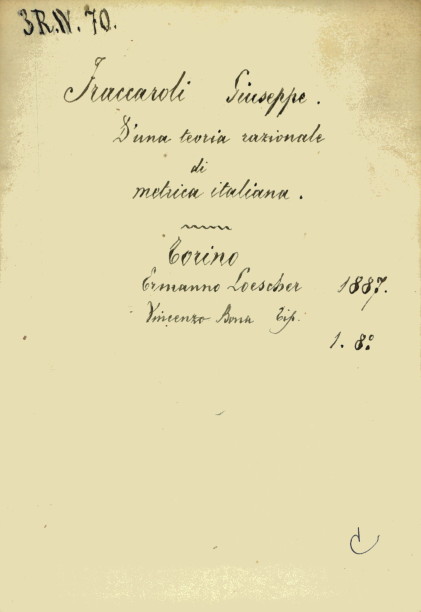 3 R.IV. 70.
Fraccaroli Giuseppe.
D'una teoria razionale
di
metrica italiana.
Torino
Ermanno Loescher 1887.
Vincenzo Bona Tip.
1. 8°